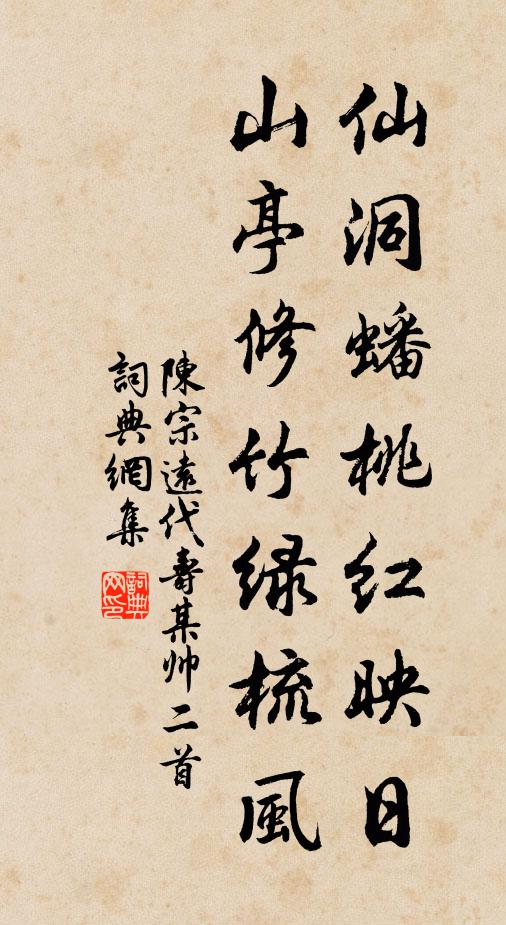 仙洞蟠桃红映日
山亭修竹绿梳風
陳宗遠代壽某帅二首
詞典網集
詞典网印